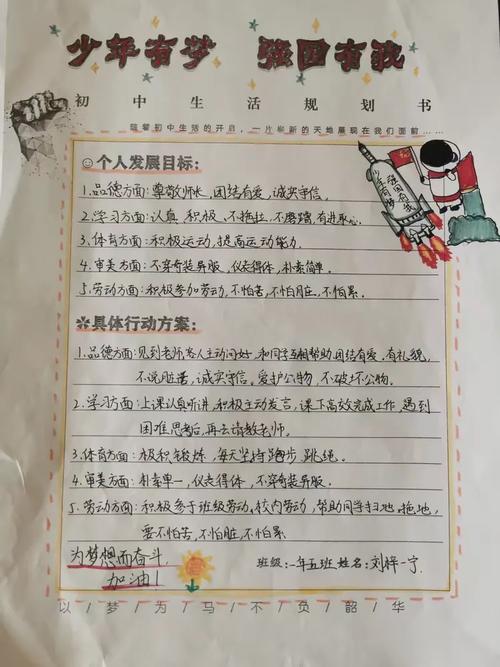 少年有梦 强国有我
初中生活规划书
随着初中生活的开启，一片崭新的天地展现在我们面前……
个人发展目标：
1.品德方面：尊敬师长，团结有爱，诚实守信。
2.学习方面：认真，积极，不拖拉，不磨蹭，有进取心。
3.体育方面：积极运动，提高运动能力。
4.审美方面：不穿奇装异服，仪表得体，朴素简单。
5.劳动方面：积极参加劳动，不怕苦，不怕脏，不怕累。
具体行动方案：
1.品德方面：见到老师客人主动问好，和同学互相帮助，团结有爱，有礼貌，
不说脏话，诚实守信。爱护公物，不破坏公物。
2.学习方面：上课认真听讲，积极主动发言，课下高效完成工作，遇到
困难思考后，再去请教老师。
3.体育方面：极积锻炼，每天坚持跑步，跳绳。
4.审美方面：朴素单一，仪表得体，不穿奇装异服。
5.劳动方面：积极参于班级劳动，校内劳动，帮助同学扫地。拖地，
要不怕苦，不怕脏，不怕累
为梦想而奋斗，
加油！
班级：一年五班 姓名：刘梓一宁
以/梦/为/马/不/负/韶/华
强国有我
少年有梦